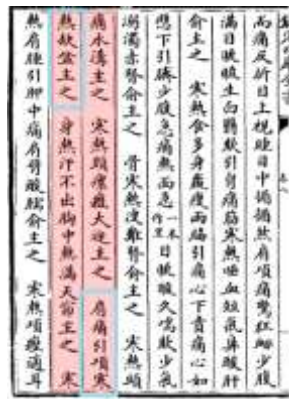 尚痛反折目上視睡目中循循然肩項痛驚狂衄少腹
滿目𥆨𥆨生白翳欬引胷痛筋寒熱唾血短氣鼻酸肝
俞主之　寒熱食多身羸瘦兩脇引痛心下賁痛心如
懸下引臍少腹急痛熱面急一本作黑目𥆨𥆨久喘欬少氣
溺濁赤腎俞主之　骨寒熱溲難腎俞主之　寒熱頭
痛水溝主之　寒熱頸瘰癧大迎主之　肩痛引項寒
熱缺盆主之　身熱汗不出胸中熱滿天窌主之　寒
熱肩腫引胛中痛肩臂酸臑俞主之　寒熱項瘰適耳